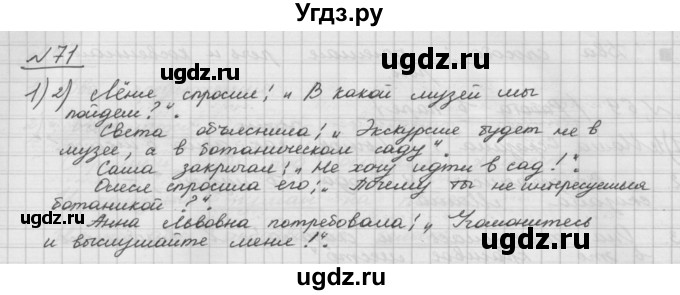 Угдз.ру
№71
1) 2) Лёне спросил: „В какой музей мы
пойдем?".
Света объяснила: „Экскурсие будет не в
музее, а в ботаническом саду".
Саша закричал: „Не хочу идти в сад!".
Олесе спросила его: „Почему ты не интересуешься
ботаникой?".
Анна Львовна потребовала: „Угомонитесь
и выслушайте мене!".
ugdz.ru ugdz.ru ugdz.ru
ugdz.ru ugdz.ru
ugdz.ru ugdz.ru
ugdz.ru